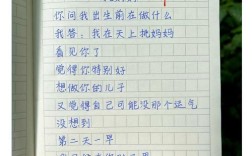 你问我出生前在做什么
我答：我在天上挑妈妈
看见你了
觉得你特别好
想做你的儿子
又觉得自己可能没那个运气
没想到
第二天一早